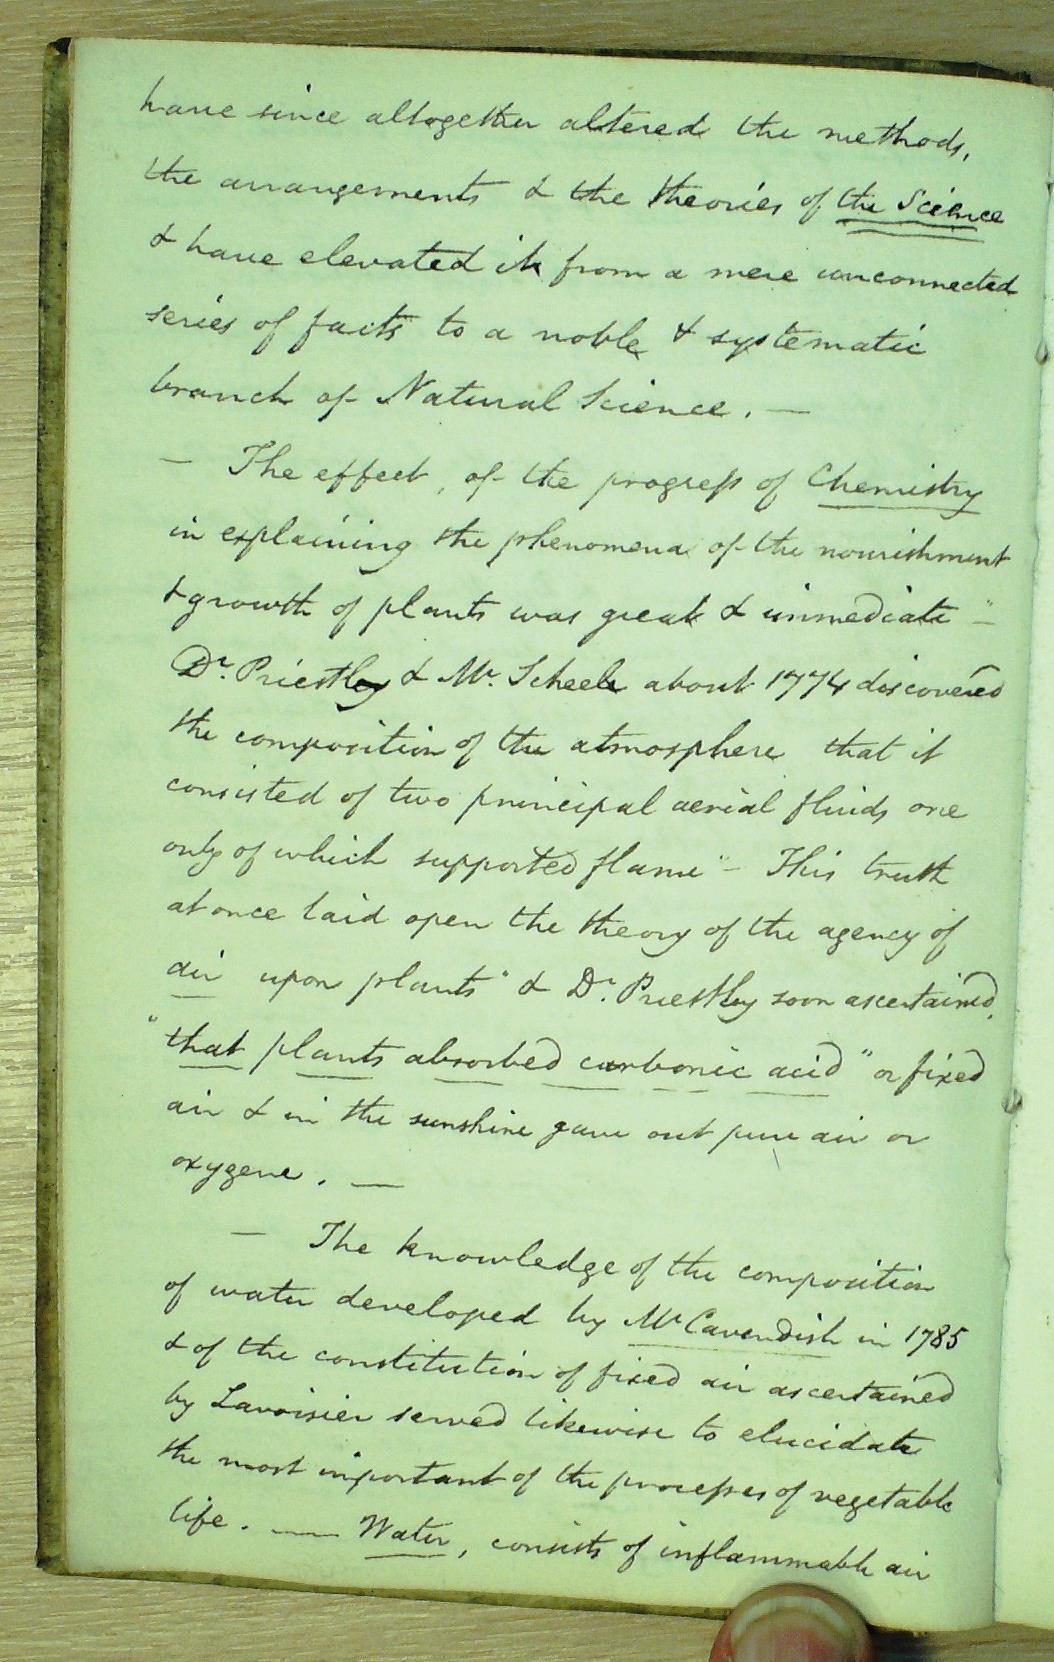 have since altogether altered the methods,
the arrangements & the theories of the Science
& have elevated it from a mere unconnected
series of facts to a noble & systematic
branch of Natural Science. —
— The effect, of the progress of Chemistry
in explaining the phenomena of the nourishment
& growth of plants was great & immediate "–
Dr. Priestley & Mr. Scheele about 1774 discovered
the composition of the atmosphere that it
consisted of two principal aerial fluids one
only of which supported flame" – This truth
at once laid open the theory of the agency of
air upon plants" & Dr. Priestley soon ascertained,
"that plants absorbed carbonic acid" or fixed
air & in the sunshine gave out pure air or
oxygene. —
— The knowledge of the composition
of water developed by Mr Cavendish in 1785
& of the constitution of fixed air ascertained
by Lavoisier served likewise to elucidate
the most important of the processes of vegetable
life. — Water, consists of inflammable air